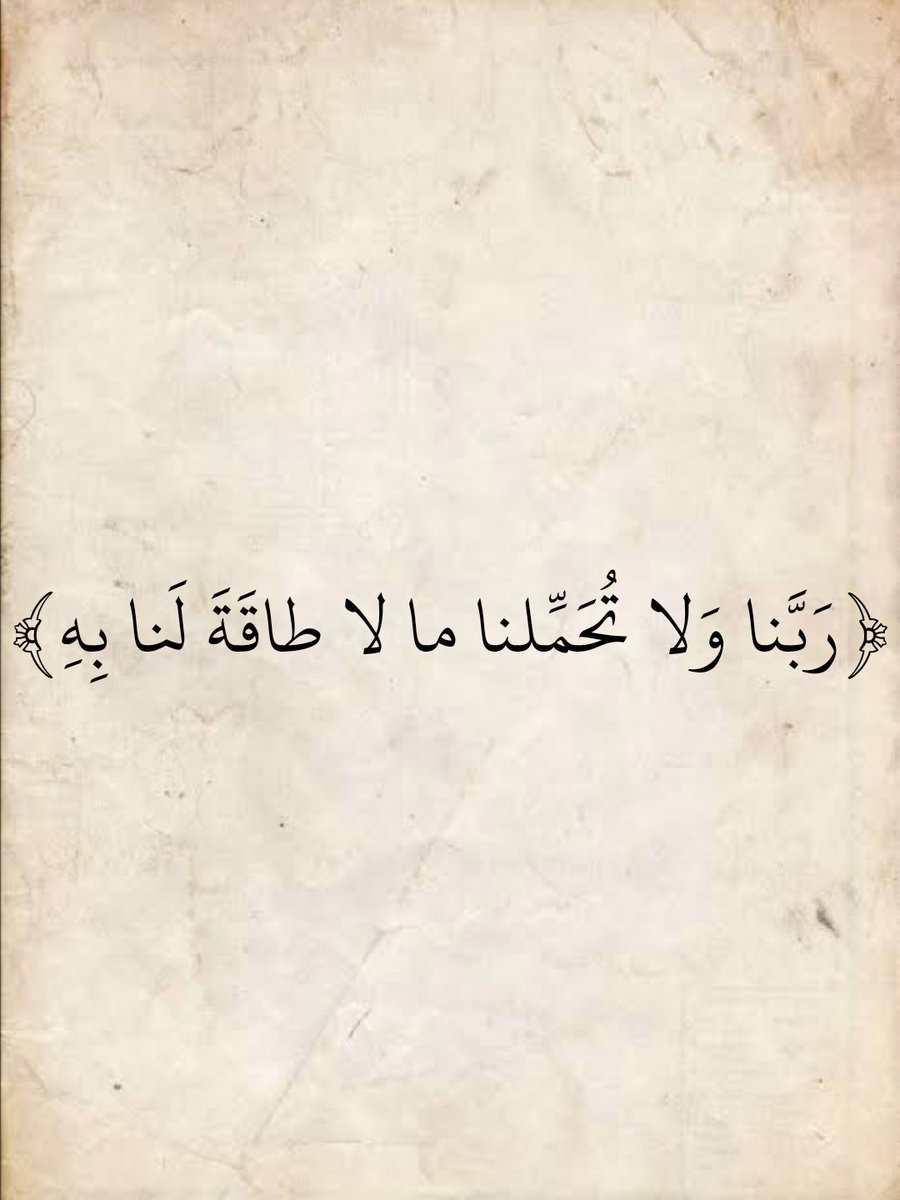 ﴿رَبَّنا وَلا تُحَمِّلنا ما لا طاقَةَ لَنا بِهِ﴾